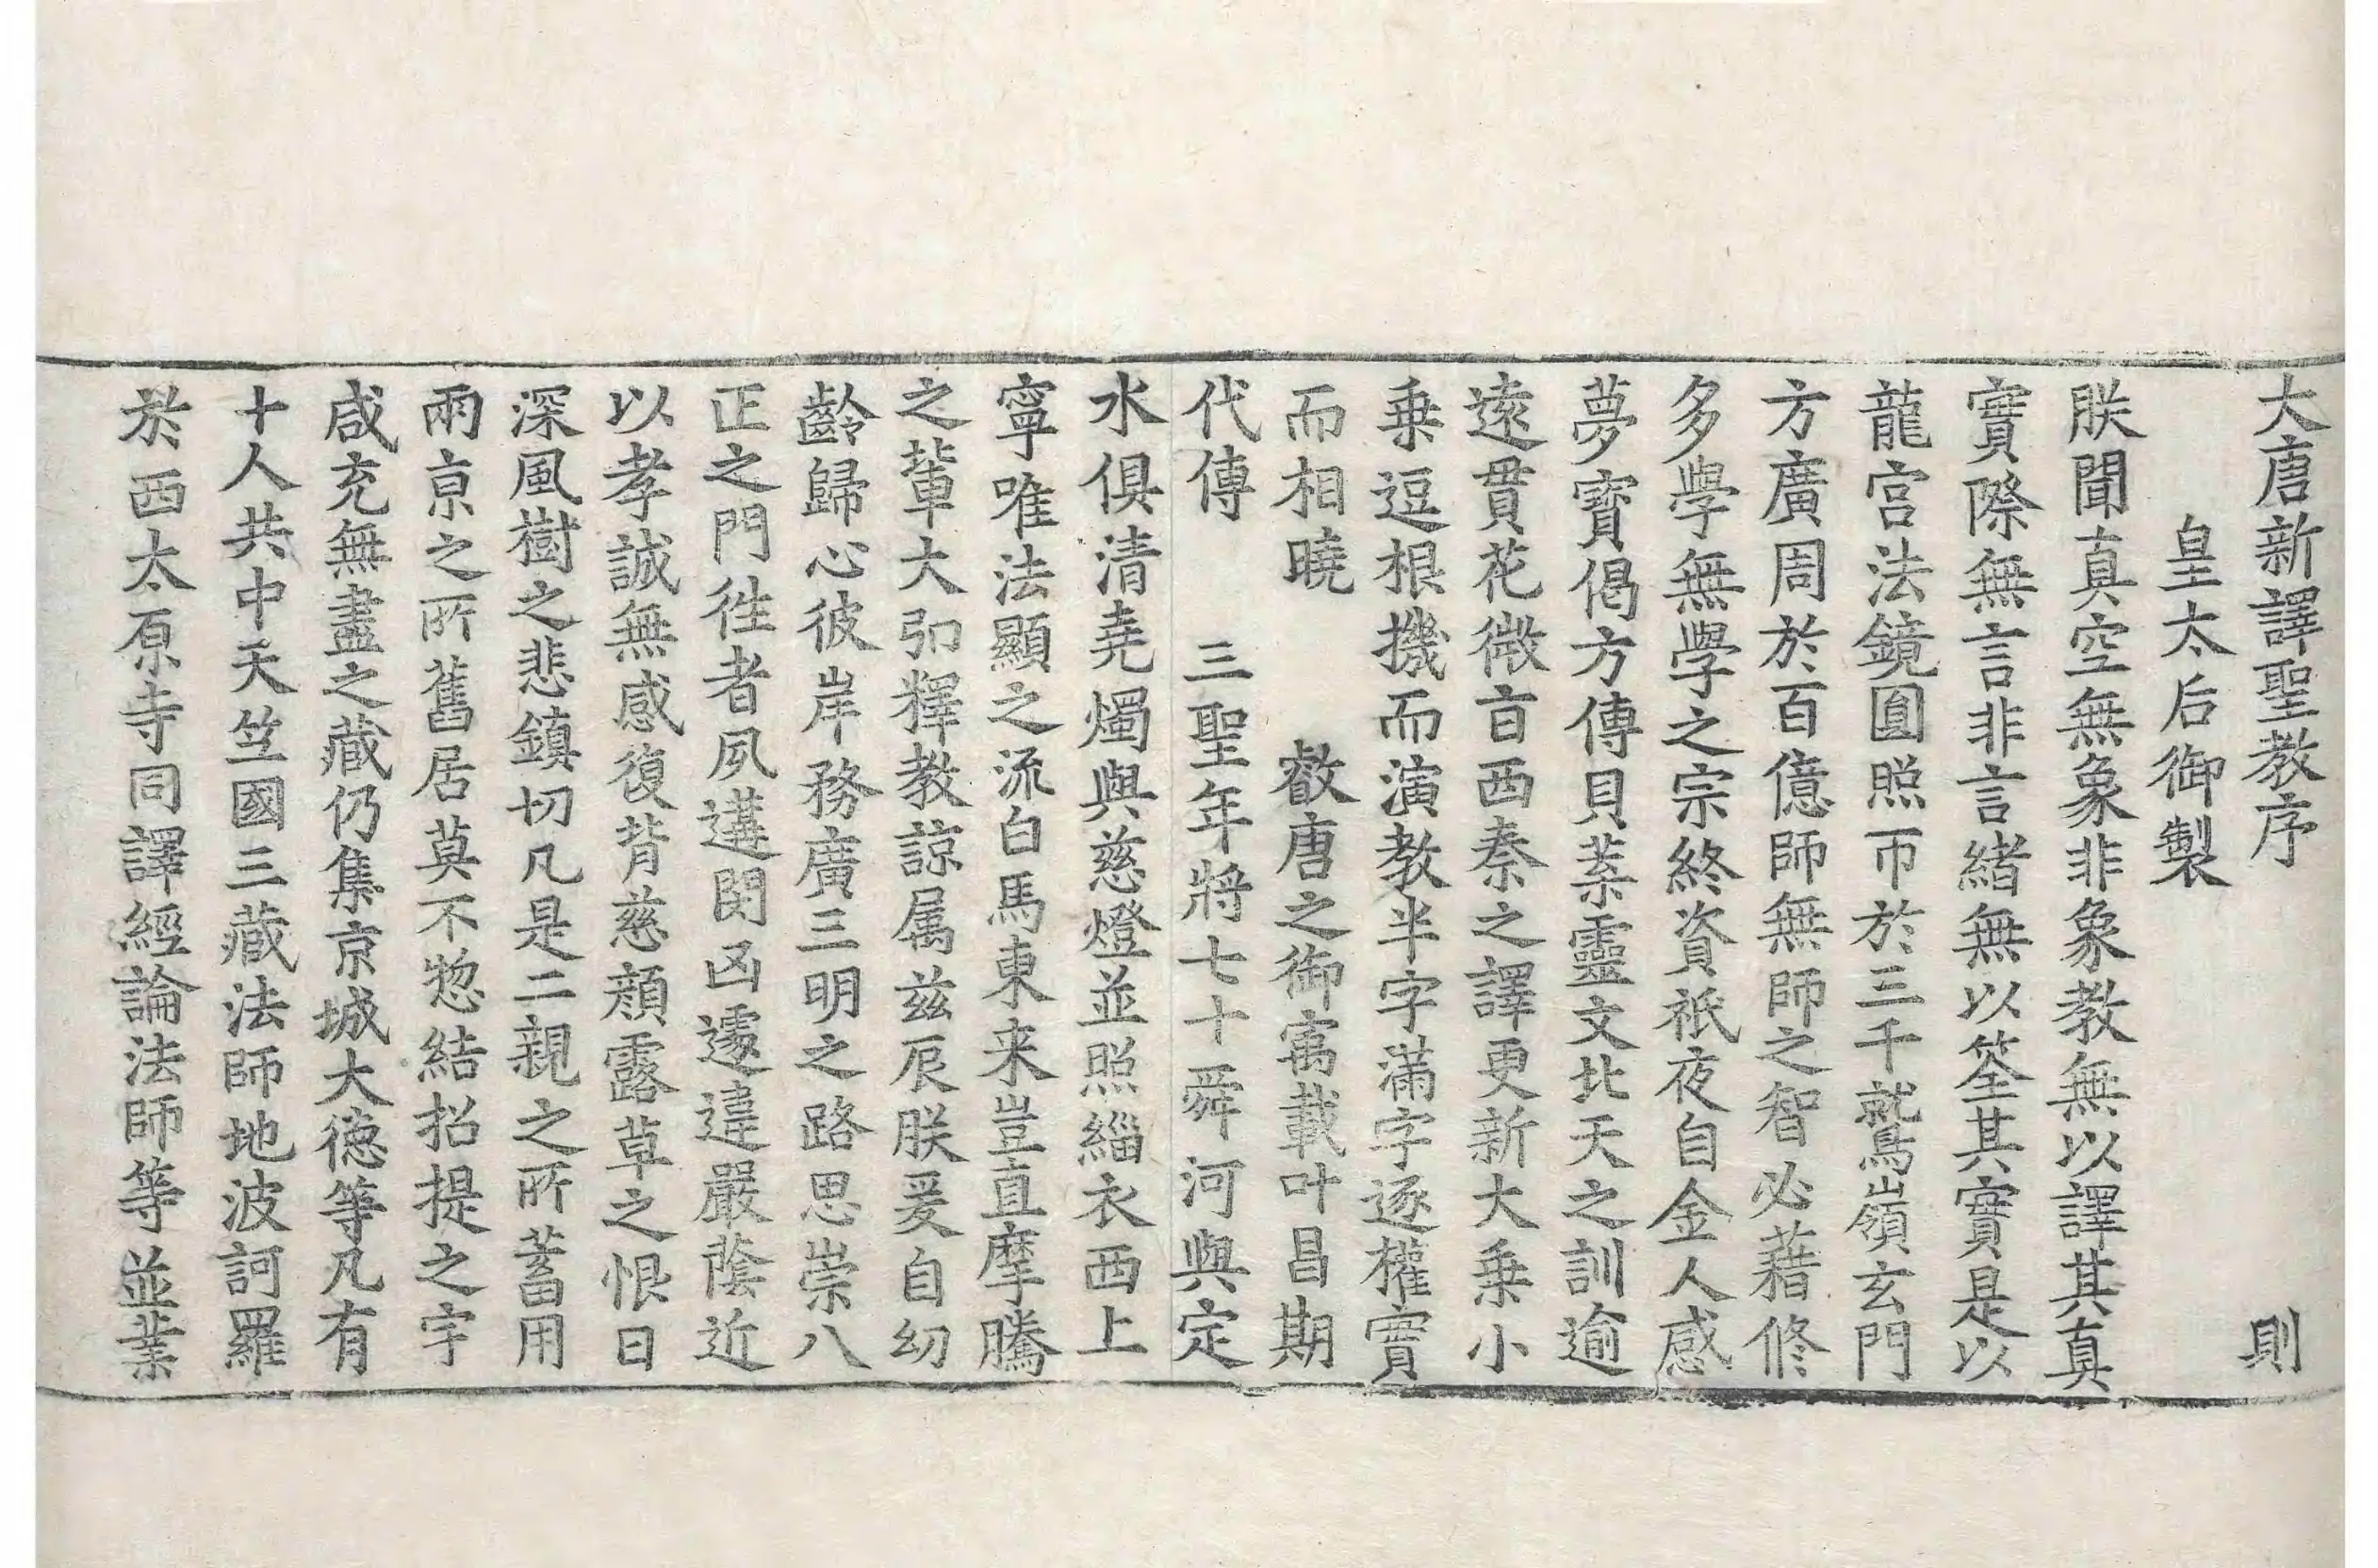 大唐新譯聖教序　則
皇太后御製
朕聞真空無象非象教無以譯其真
實際無言非言緒無以筌其實是以
龍宮法鏡圓照帀於三千鷲嶺玄門
方廣周於百億師無師之智必藉修
多學無學之宗終資祇夜自金人感
夢寶偈方傳貝葉靈文北天之訓逾
遠貫花微言西秦之譯更新大乗小
乗逗根機而演教半字滿字逐權實
而相曉　叡唐之御寓載叶昌期
代傳　三聖年將七十舜河與定
水俱清堯燭與慈燈並照緇衣西上
寧唯法顯之流白馬東来豈直摩騰
之輩大弘釋教諒属兹辰朕爰自幼
齡歸心彼岸務廣三明之路思崇八
正之門往者夙遘閔凶遽違嚴蔭近
以孝誠無感復背慈顔露草之恨日
深風樹之悲鎮切凡是二親之所蓄用
兩京之所舊居莫不惣結招提之宇
咸充無盡之藏仍集京城大徳等凡有
十人共中天竺國三藏法師地波訶羅
於西太原寺同譯經論法師等並業